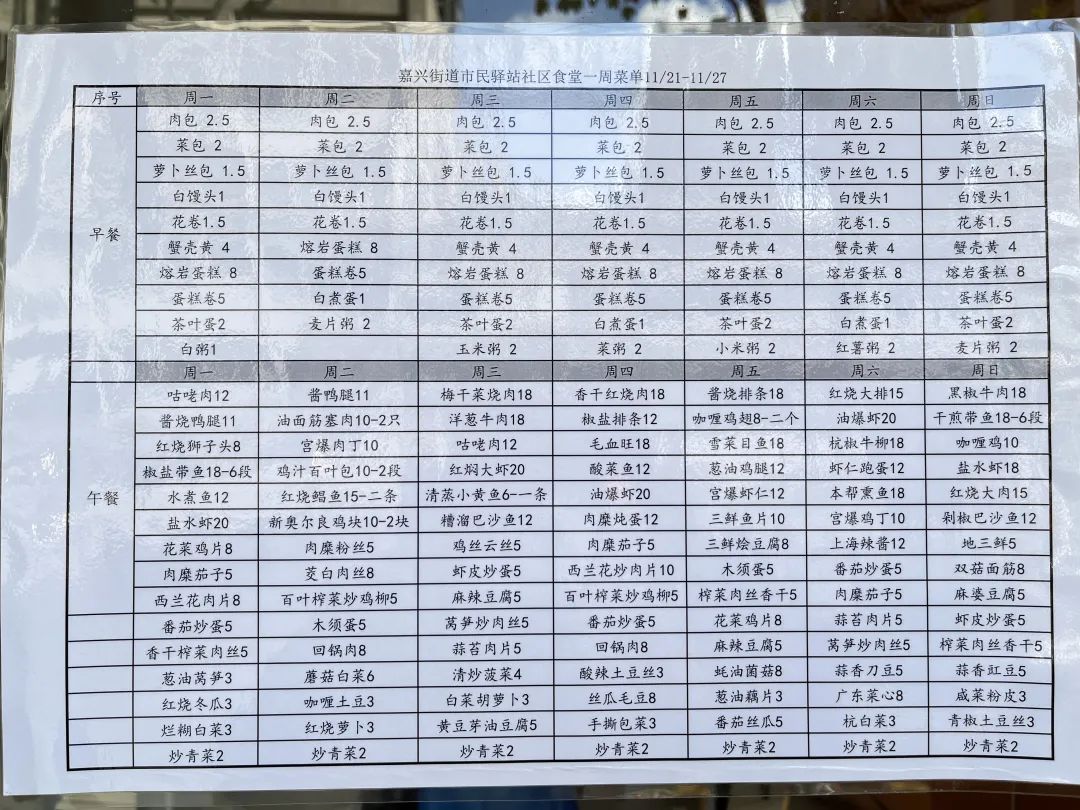 嘉兴街道市民驿站社区食堂一周菜单11/21-11/27
序号 周一 周二 周三 周四 周五 周六 周日
肉包 2.5 肉包 2.5 肉包 2.5 肉包 2.5 肉包 2.5 肉包 2.5 肉包 2.5
菜包 2 菜包 2 菜包 2 菜包 2 菜包 2 菜包 2 菜包 2
萝卜丝包 1.5 萝卜丝包 1.5 萝卜丝包 1.5 萝卜丝包 1.5 萝卜丝包 1.5 萝卜丝包 1.5 萝卜丝包 1.5
白馒头1 白馒头1 白馒头1 白馒头1 白馒头1 白馒头1 白馒头1
花卷1.5 花卷1.5 花卷1.5 花卷1.5 花卷1.5 花卷1.5 花卷1.5
早餐 蟹壳黄 4 熔岩蛋糕 8 蟹壳黄 4 蟹壳黄 4 蟹壳黄 4 蟹壳黄 4 蟹壳黄 4
熔岩蛋糕 8 蛋糕卷5 熔岩蛋糕 8 熔岩蛋糕 8 熔岩蛋糕 8 熔岩蛋糕 8 熔岩蛋糕 8
蛋糕卷5 白煮蛋1 蛋糕卷5 蛋糕卷5 蛋糕卷5 蛋糕卷5 蛋糕卷5
茶叶蛋2 麦片粥 2 茶叶蛋2 白煮蛋1 茶叶蛋2 白煮蛋1 茶叶蛋2
白粥1 玉米粥 2 菜粥 2 小米粥 2 红薯粥 2 麦片粥 2
周一 周二 周三 周四 周五 周六 周日
咕咾肉12 酱鸭腿11 梅干菜烧肉18 香干红烧肉18 酱烧排条18 红烧大排15 黑椒牛肉18
酱烧鸭腿11 油面筋塞肉10-2只 洋葱牛肉18 椒盐排条12 咖喱鸡翅8-二个 油爆虾20 干煎带鱼18-6段
红烧狮子头8 宫爆肉丁10 咕咾肉12 毛血旺18 雪菜目鱼18 杭椒牛柳18 咖喱鸡10
椒盐带鱼18-6段 鸡汁百叶包10-2段 红焖大虾20 酸菜鱼12 葱油鸡腿12 虾仁跑蛋12 盐水虾18
午餐 水煮鱼12 红烧鲳鱼15-二条 清蒸小黄鱼6-一条 油爆虾20 宫爆虾仁12 本帮熏鱼18 红烧大肉15
盐水虾20 新奥尔良鸡块10-2块 糟溜巴沙鱼12 肉糜炖蛋12 三鲜鱼片10 宫爆鸡丁10 剁椒巴沙鱼12
花菜鸡片8 肉糜粉丝5 鸡丝云丝5 肉糜茄子5 三鲜烩豆腐8 上海辣酱12 地三鲜5
肉糜茄子5 茭白肉丝8 虾皮炒蛋5 西兰花炒肉片10 木须蛋5 番茄炒蛋5 双菇面筋8
西兰花肉片8 百叶榨菜炒鸡柳5 麻辣豆腐5 百叶榨菜炒鸡柳5 榨菜肉丝香干5 肉糜茄子5 麻婆豆腐5
番茄炒蛋5 木须蛋5 莴笋炒肉丝5 番茄炒蛋5 花菜鸡片8 蒜苔肉片5 虾皮炒蛋5
香干榨菜肉丝5 回锅肉8 蒜苔肉片5 回锅肉8 麻辣豆腐5 莴笋炒肉丝5 榨菜肉丝香干5
葱油莴笋3 蘑菇白菜6 清炒菠菜4 酸辣土豆丝3 蚝油菌菇8 蒜香刀豆5 蒜香豇豆5
红烧冬瓜3 咖喱土豆3 白菜胡萝卜3 丝瓜毛豆8 葱油藕片3 广东菜心8 咸菜粉皮3
烂糊白菜3 红烧萝卜3 黄豆芽油豆腐5 手撕包菜3 番茄丝瓜5 杭白菜3 青椒土豆丝3
炒青菜2 炒青菜2 炒青菜2 炒青菜2 炒青菜2 炒青菜2 炒青菜2